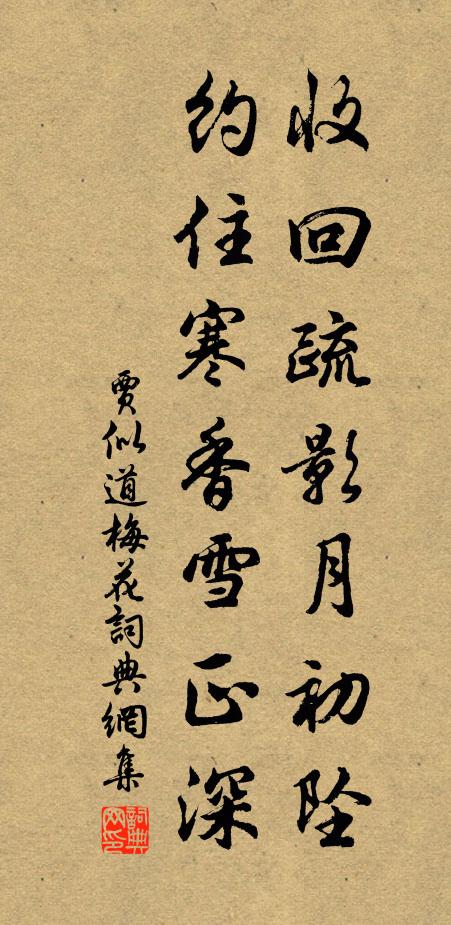 收回疏影月初坠
约住寒香雪正深
賈似道梅花詞典網集
詞典网印